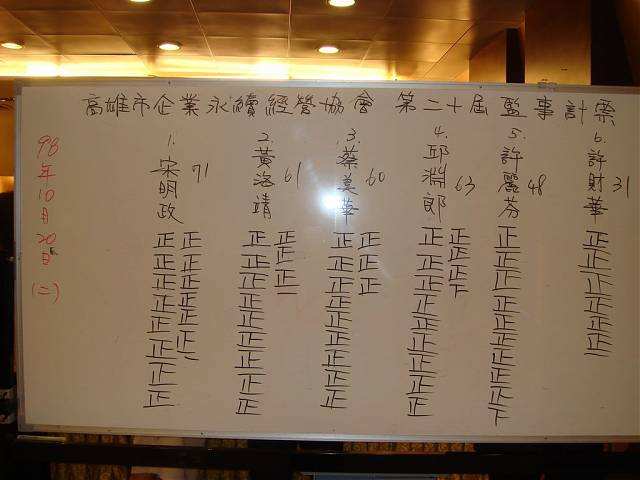 高雄市企業永續經營協會 第二十屆監事計票
98年10月20日
(二)
1. 宋明政 71
2. 黃海靖 61
3. 蔡美華 60
4. 邱淵郎 63
5. 許麗芬 48
6. 許財華 31
正正正正正正正正 正正正正正正
正正正正正正正正正 正正正
正正正正正正正正正 正正正
正正正正正正正正正 正正正
正正正正正正正正正
正正正正正正